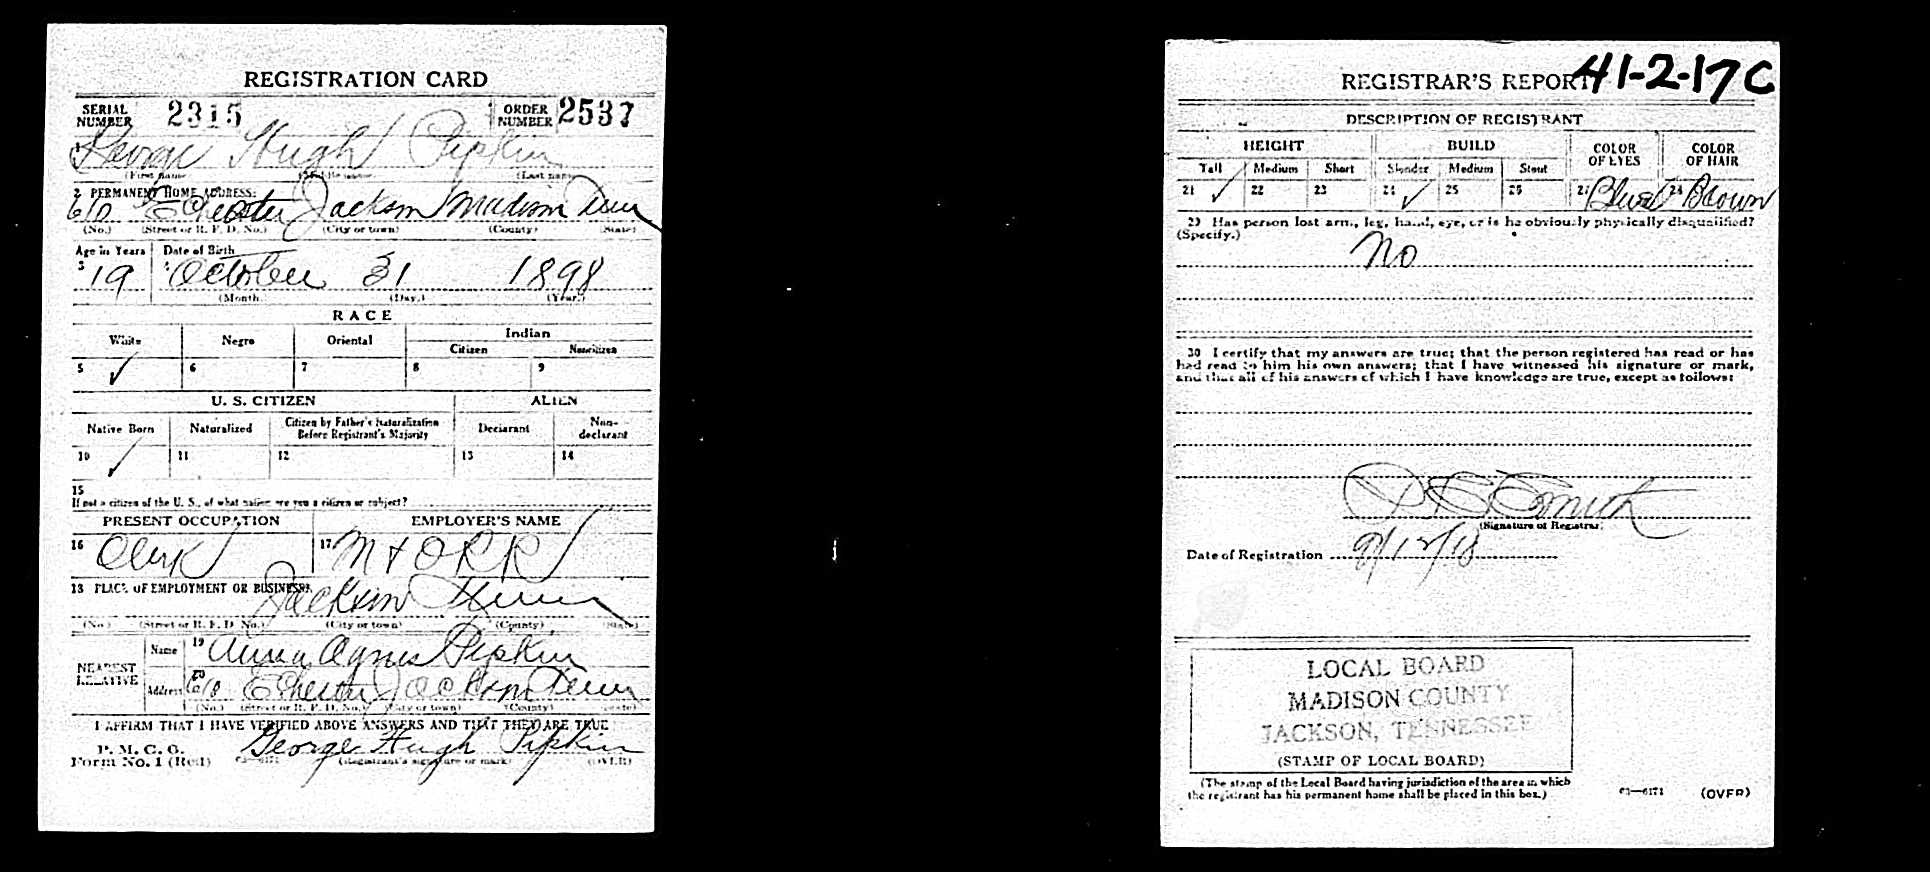 REGISTRATION CARD
SERIAL NUMBER 2315 ORDER NUMBER 2537
George Hugh Pipkin
(First name) (Middle name) (Last name)
2 PERMANENT HOME ADDRESS:
610 E Chester Jackson Madison Tenn
(No.) (Street or R. F. D. No.) (City or town) (County) (State)
Age in Years Date of Birth
3 19 October 31 1898
(Month.) (Day.) (Year.)
RACE
White Negro Oriental Indian
Citizen Noncitizen
5 ✓ 6 7 8 9
U. S. CITIZEN ALIEN
Native Born Naturalized Citizen by Father's Naturalization Before Registrant's Majority Declarant Non-declarant
10 ✓ 11 12 13 14
15
If not a citizen of the U. S., of what nation are you a citizen or subject?
PRESENT OCCUPATION EMPLOYER'S NAME
16 Clerk 17 M & O R R
18 PLACE OF EMPLOYMENT OR BUSINESS:
Jackson Tenn
(No.) (Street or R. F. D. No.) (City or town) (County) (State)
NEAREST RELATIVE
Name 19 Anna Agnes Pipkin
Address 20 610 E Chester Jackson Tenn
(No.) (Street or R. F. D. No.) (City or town) (County) (State)
I AFFIRM THAT I HAVE VERIFIED ABOVE ANSWERS AND THAT THEY ARE TRUE
P. M. G. O.
Form No. 1 (Red) 03—6171 George Hugh Pipkin
(Registrant's signature or mark) (OVER)
REGISTRAR'S REPORT 41-2-17 C
DESCRIPTION OF REGISTRANT
HEIGHT BUILD COLOR OF EYES COLOR OF HAIR
Tall Medium Short Slender Medium Stout
21 ✓ 22 23 24 ✓ 25 26 27 Blue 28 Brown
29 Has person lost arm, leg, hand, eye, or is he obviously physically disqualified?
(Specify.) No
30 I certify that my answers are true; that the person registered has read or has
had read to him his own answers; that I have witnessed his signature or mark,
and that all of his answers of which I have knowledge are true, except as follows:
Smith
(Signature of Registrar)
Date of Registration 9/12/18
LOCAL BOARD
MADISON COUNTY
JACKSON, TENNESSEE
(STAMP OF LOCAL BOARD)
(The stamp of the Local Board having jurisdiction of the area in which
the registrant has his permanent home shall be placed in this box.)
03—6171 (OVER)